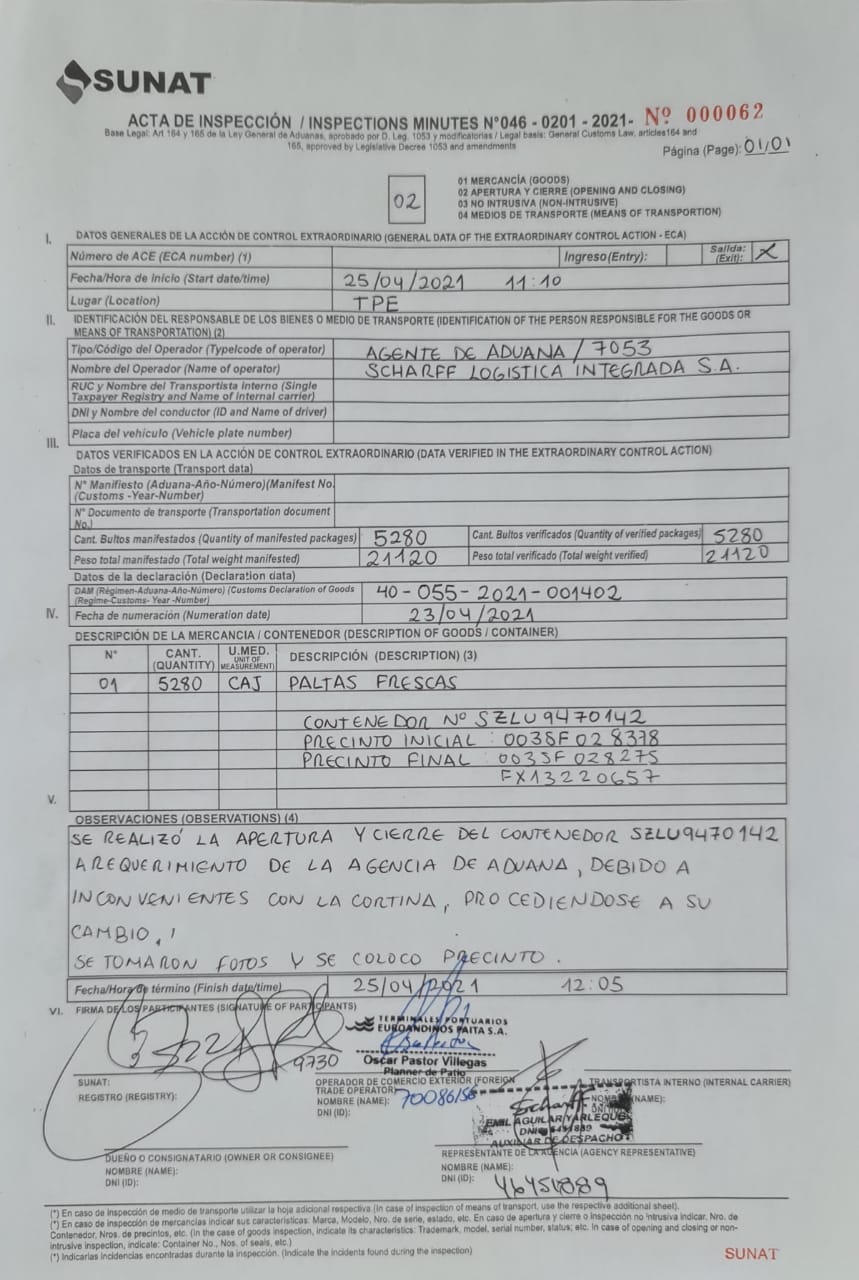 SUNAT
ACTA DE INSPECCIÓN / INSPECTIONS MINUTES N°046 - 0201 - 2021- Nº 000062
Base Legal: Art 164 y 165 de la Ley General de Aduanas, aprobado por D. Leg. 1053 y modificatorias / Legal basis: General Customs Law, articles164 and
165, approved by Legislative Decree 1053 and amendments
Página (Page): 01/01
02
01 MERCANCÍA (GOODS)
02 APERTURA Y CIERRE (OPENING AND CLOSING)
03 NO INTRUSIVA (NON-INTRUSIVE)
04 MEDIOS DE TRANSPORTE (MEANS OF TRANSPORTION)
I. DATOS GENERALES DE LA ACCIÓN DE CONTROL EXTRAORDINARIO (GENERAL DATA OF THE EXTRAORDINARY CONTROL ACTION - ECA)
Número de ACE (ECA number) (1) Ingreso(Entry): Salida: (Exit): X
Fecha/Hora de inicio (Start date/time) 25/04/2021 11:10
Lugar (Location) TPE
II. IDENTIFICACIÓN DEL RESPONSABLE DE LOS BIENES O MEDIO DE TRANSPORTE (IDENTIFICATION OF THE PERSON RESPONSIBLE FOR THE GOODS OR
MEANS OF TRANSPORTATION) (2)
Tipo/Código del Operador (Typelcode of operator) AGENTE DE ADUANA / 7053
Nombre del Operador (Name of operator) SCHARFF LOGISTICA INTEGRADA S.A.
RUC y Nombre del Transportista Interno (Single
Taxpayer Registry and Name of internal carrier)
DNI y Nombre del conductor (ID and Name of driver)
Placa del vehículo (Vehicle plate number)
III. DATOS VERIFICADOS EN LA ACCIÓN DE CONTROL EXTRAORDINARIO (DATA VERIFIED IN THE EXTRAORDINARY CONTROL ACTION)
Datos de transporte (Transport data)
N° Manifiesto (Aduana-Año-Número)(Manifest No.
(Customs -Year-Number)
N° Documento de transporte (Transportation document
No.)
Cant. Bultos manifestados (Quantity of manifested packages) 5280 Cant. Bultos verificados (Quantity of verified packages) 5280
Peso total manifestado (Total weight manifested) 21120 Peso total verificado (Total weight verified) 21120
Datos de la declaración (Declaration data)
DAM (Régimen-Aduana-Año-Número) (Customs Declaration of Goods
(Regime-Customs- Year -Number) 40-055-2021-001402
Fecha de numeración (Numeration date) 23/04/2021
IV. DESCRIPCIÓN DE LA MERCANCIA / CONTENEDOR (DESCRIPTION OF GOODS / CONTAINER)
N° CANT. (QUANTITY) U.MED. UNIT OF MEASUREMENT) DESCRIPCIÓN (DESCRIPTION) (3)
01 5280 CAJ PALTAS FRESCAS
CONTENEDOR Nº SZLU9470142
PRECINTO INICIAL : 003SF028378
PRECINTO FINAL : 003SF028275
FX13220657
V. OBSERVACIONES (OBSERVATIONS) (4)
SE REALIZÓ LA APERTURA Y CIERRE DEL CONTENEDOR SZLU9470142
A REQUERIMIENTO DE LA AGENCIA DE ADUANA, DEBIDO A
INCONVENIENTES CON LA CORTINA, PROCEDIENDOSE A SU
CAMBIO.
SE TOMARON FOTOS Y SE COLOCO PRECINTO.
Fecha/Hora de término (Finish date/time) 25/04/2021 12:05
VI. FIRMA DE LOS PARTICIPANTES (SIGNATURE OF PARTICIPANTS)
TERMINALES PORTUARIOS
EUROANDINOS PAITA S.A.
9730
Oscar Pastor Villegas
Planner de Patio
SUNAT:
REGISTRO (REGISTRY):
OPERADOR DE COMERCIO EXTERIOR (FOREIGN
TRADE OPERATOR)
NOMBRE (NAME): 70086156
DNI (ID):
TRANSPORTISTA INTERNO (INTERNAL CARRIER)
NOMBRE (NAME):
DNI (ID):
Scharff
EMIL AGUILAR YARLEQUE
DNI
AUXILIAR DE DESPACHO
DUEÑO O CONSIGNATARIO (OWNER OR CONSIGNEE)
NOMBRE (NAME):
DNI (ID):
REPRESENTANTE DE LA AGENCIA (AGENCY REPRESENTATIVE)
NOMBRE (NAME):
DNI (ID): 46451889
(*) En caso de inspección de medio de transporte utilizar la hoja adicional respectiva.(In case of inspection of means of transport, use the respective additional sheet).
(*) En caso de inspección de mercancias indicar sus características: Marca, Modelo, Nro. de serie, estado, etc. En caso de apertura y cierre o inspección no intrusiva indicar, Nro. de
Contenedor, Nros. de precintos, etc. (In the case of goods inspection, indicate its characteristics: Trademark, model, serial number, status; etc. In case of opening and closing or non-
intrusive inspection, indicate: Container No., Nos. of seals, etc.)
(*) Indicarlas incidencias encontradas durante la inspección. (Indicate the incidents found during the inspection)
SUNAT